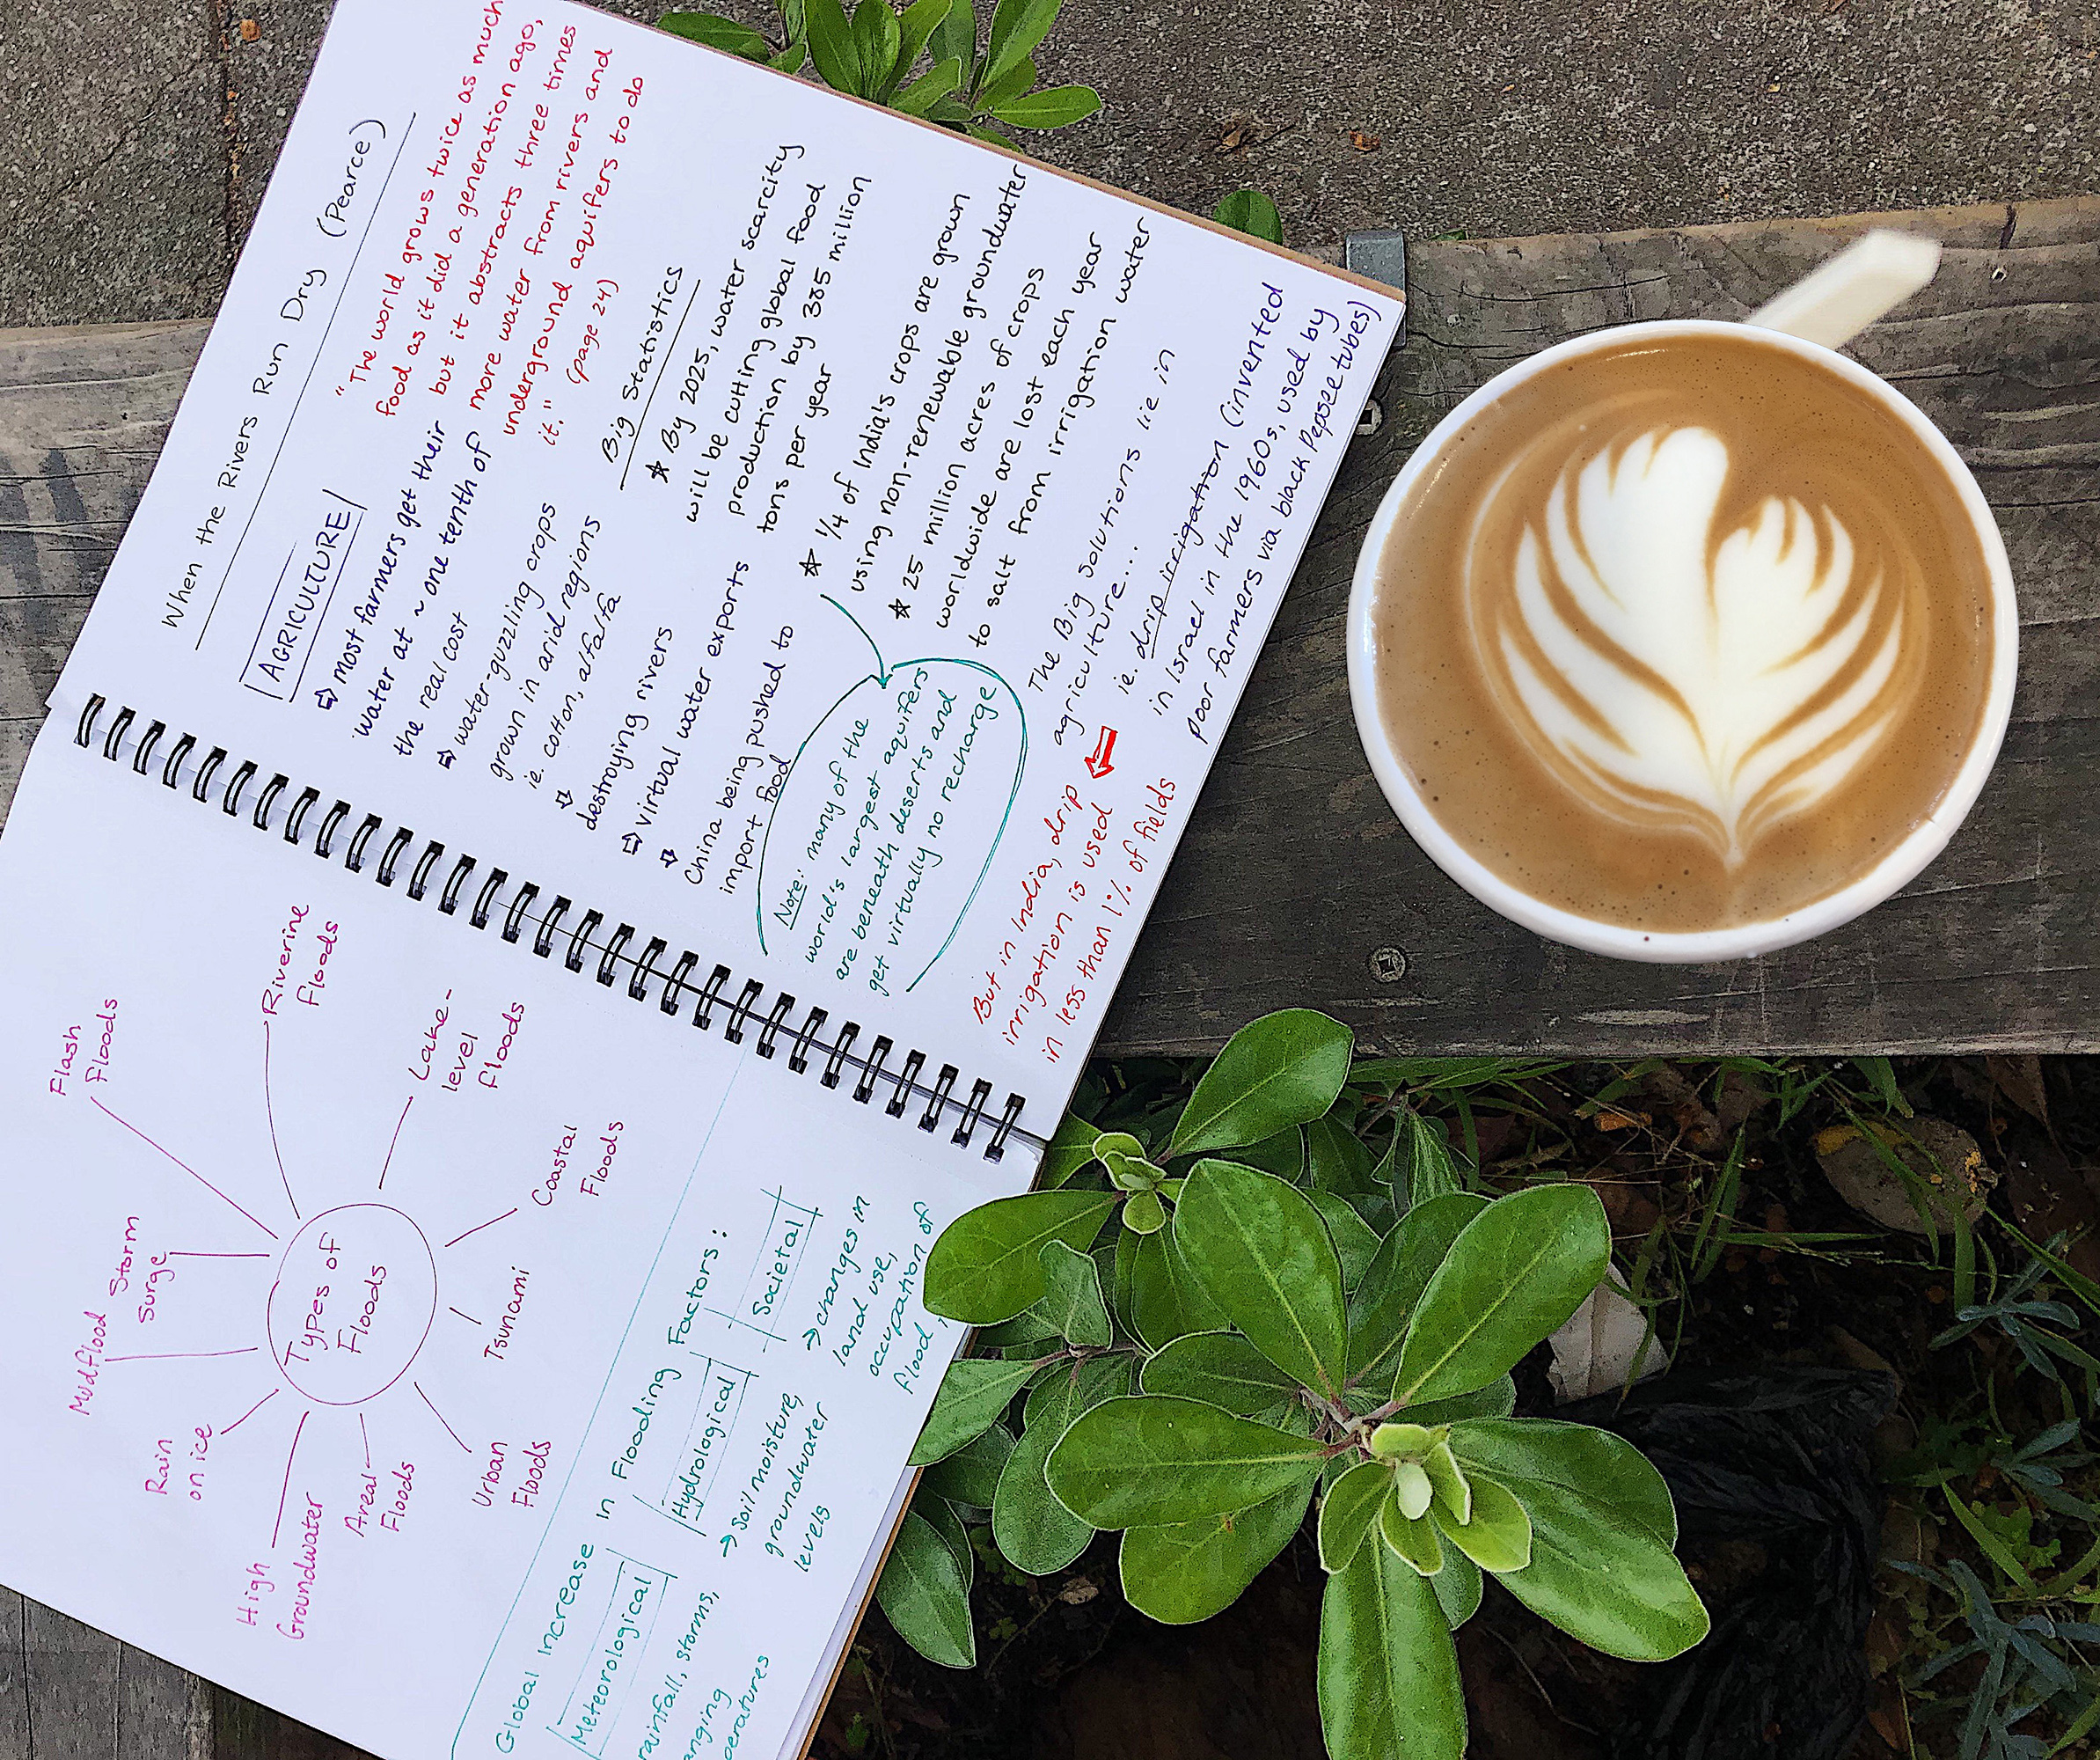 Flash
Floods
Riverine
Floods
Lake-
level
Floods
Coastal
Floods
Tsunami
Urban
Floods
Areal
Floods
High
Groundwater
Rain
on ice
Mudflood
Storm
Surge
Types of
Floods
Global Increase in Flooding Factors:
Meteorological
rainfall, storms,
Hydrological
→ soil moisture,
groundwater
levels
Societal
→ changes in
land use,
occupation of
flood
When the Rivers Run Dry (Pearce)
AGRICULTURE
⇨ most farmers get their
water at ~ one tenth of
the real cost
⇨ water-guzzling crops
grown in arid regions
ie. cotton, alfalfa
⇩
destroying rivers
⇨ virtual water exports
⇩
China being pushed to
import food
"The world grows twice as much
food as it did a generation ago,
but it abstracts three times
more water from rivers and
underground aquifers to do
it." (page 24)
Big Statistics
★ By 2025, water scarcity
will be cutting global food
production by 385 million
tons per year
★ 1/4 of India's crops are grown
using non-renewable groundwater
★ 25 million acres of crops
worldwide are lost each year
to salt from irrigation water
Note: many of the
world's largest aquifers
are beneath deserts and
get virtually no recharge
The Big Solutions lie in
agriculture...
ie. drip irrigation (invented
in Israel in the 1960s, used by
poor farmers via black Pepsee tubes)
But in India, drip
irrigation is used
in less than 1% of fields